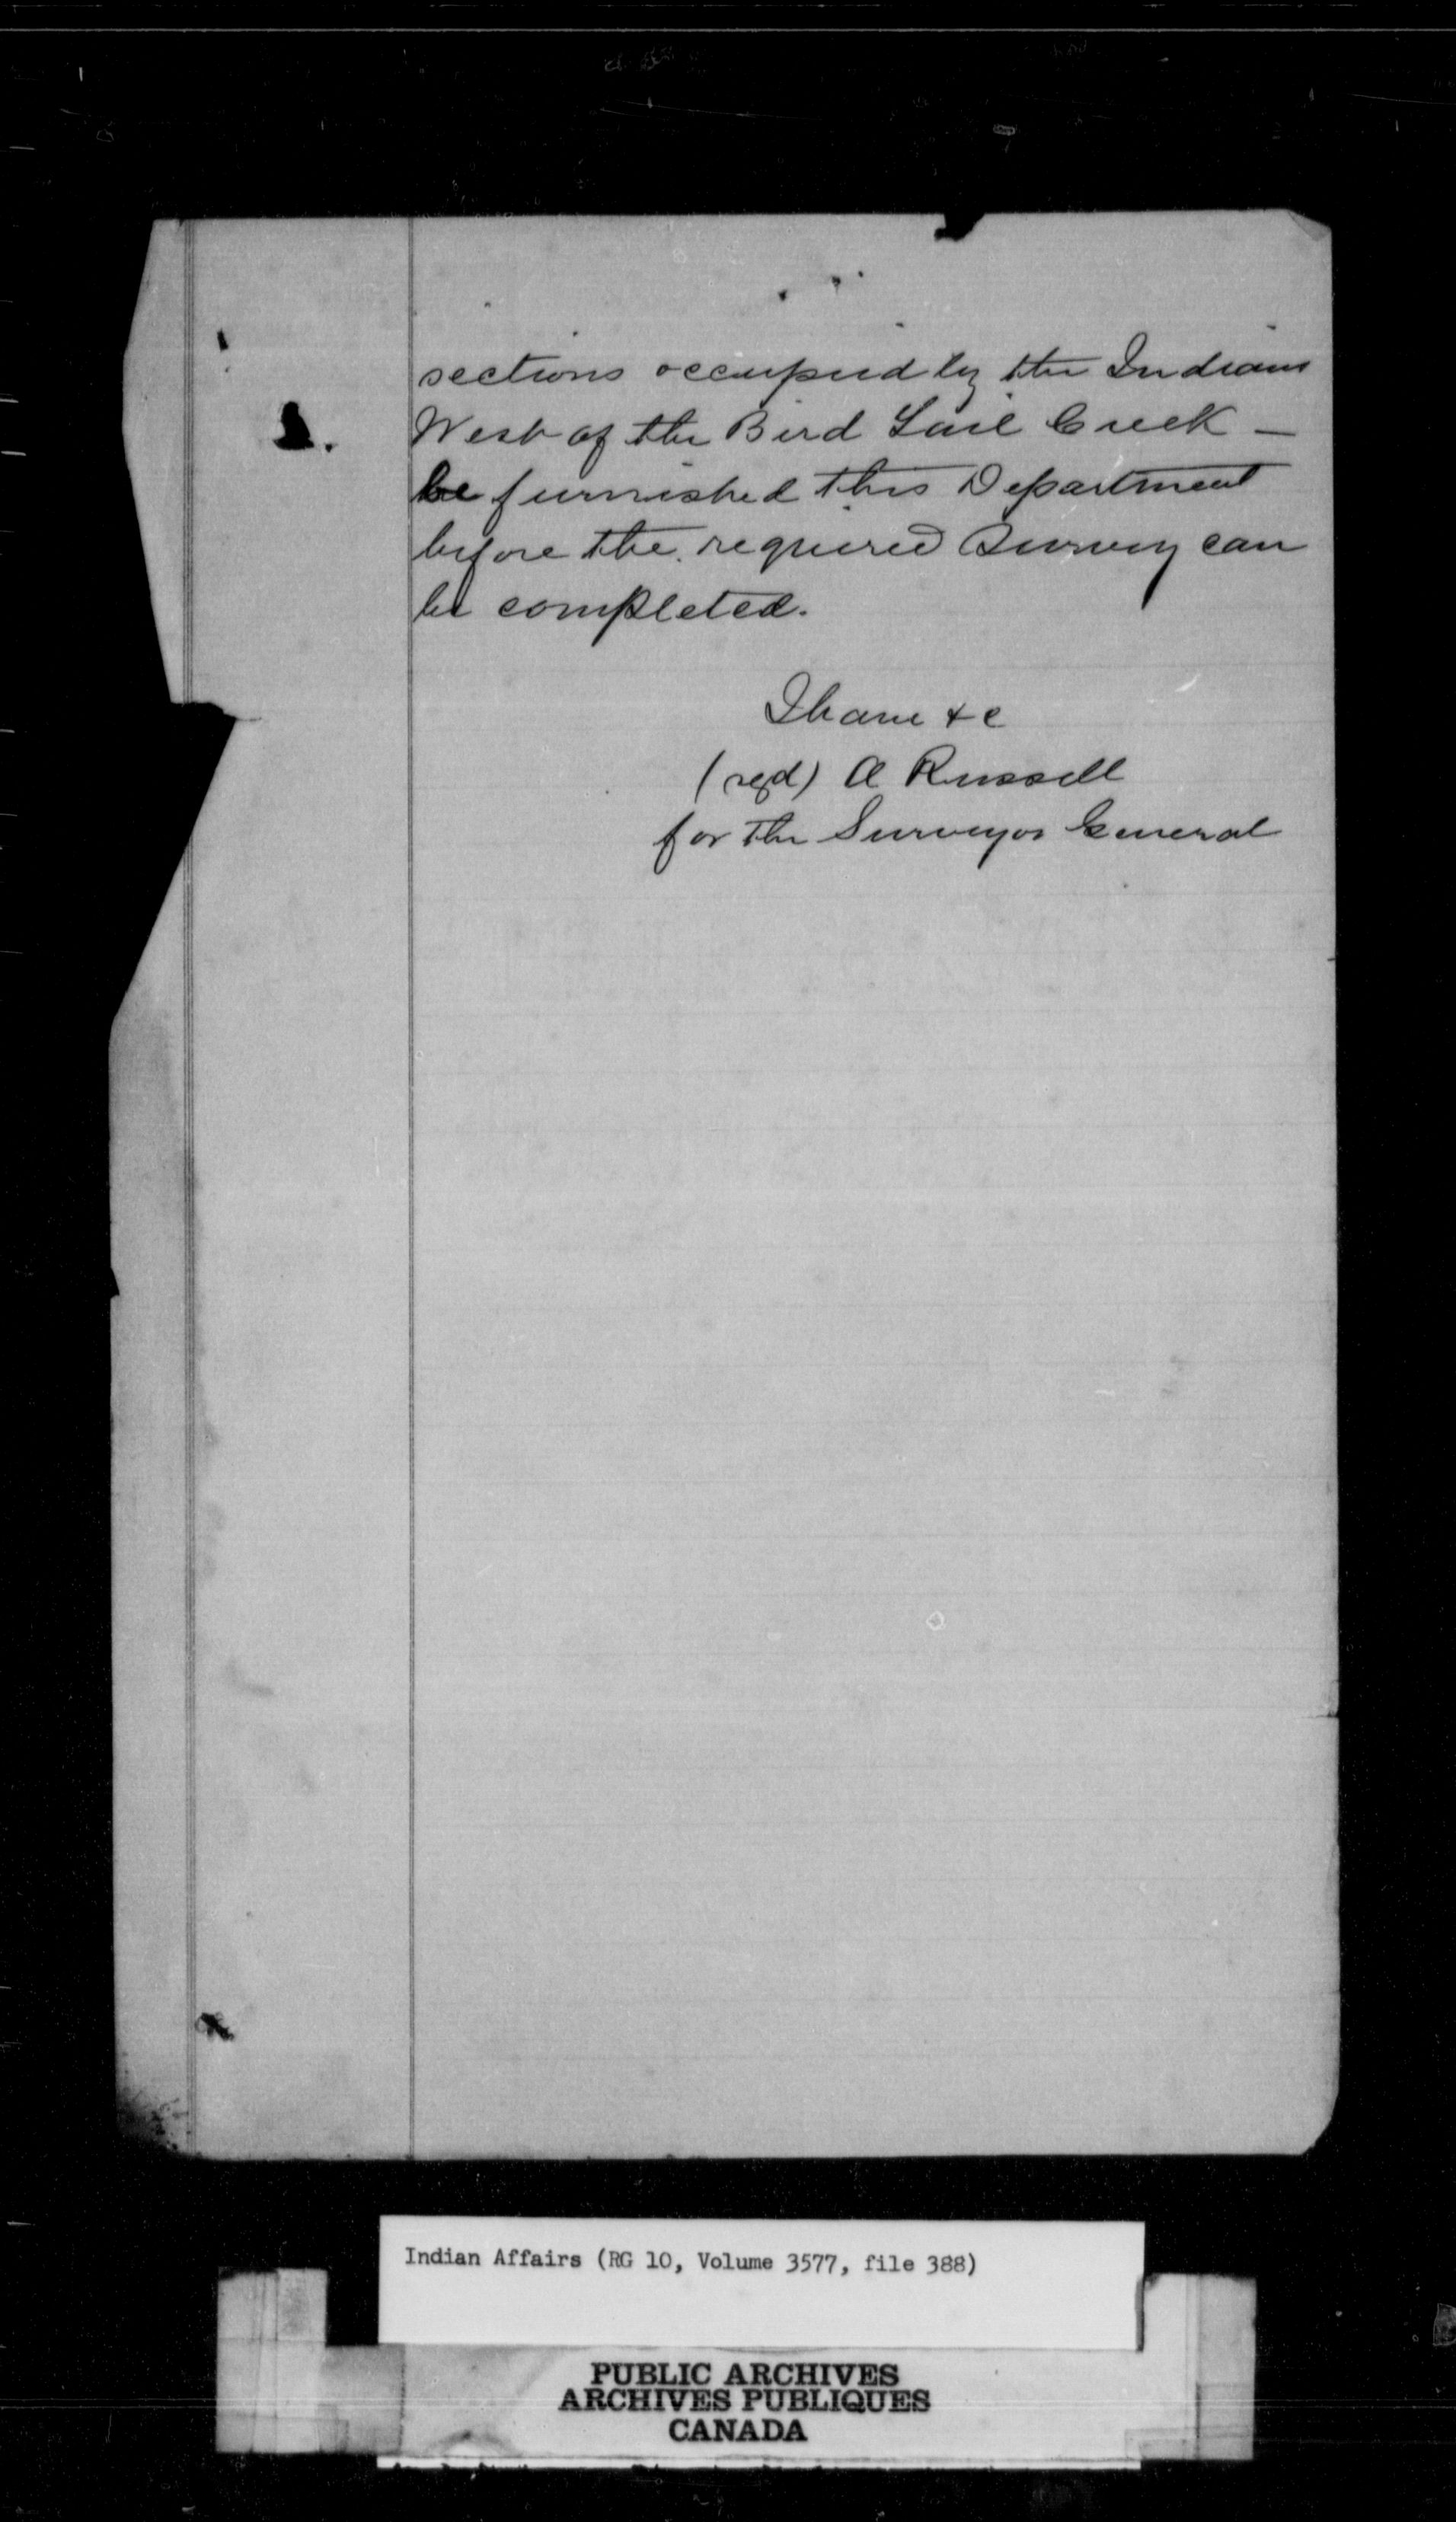 sections occupied by the Indians
West of the Bird Tail Creek —
be furnished this Department
before the required Survey can
be completed.
I have &c
(sgd) A Russell
for the Surveyor General
Indian Affairs (RG 10, Volume 3577, file 388)
PUBLIC ARCHIVES
ARCHIVES PUBLIQUES
CANADA